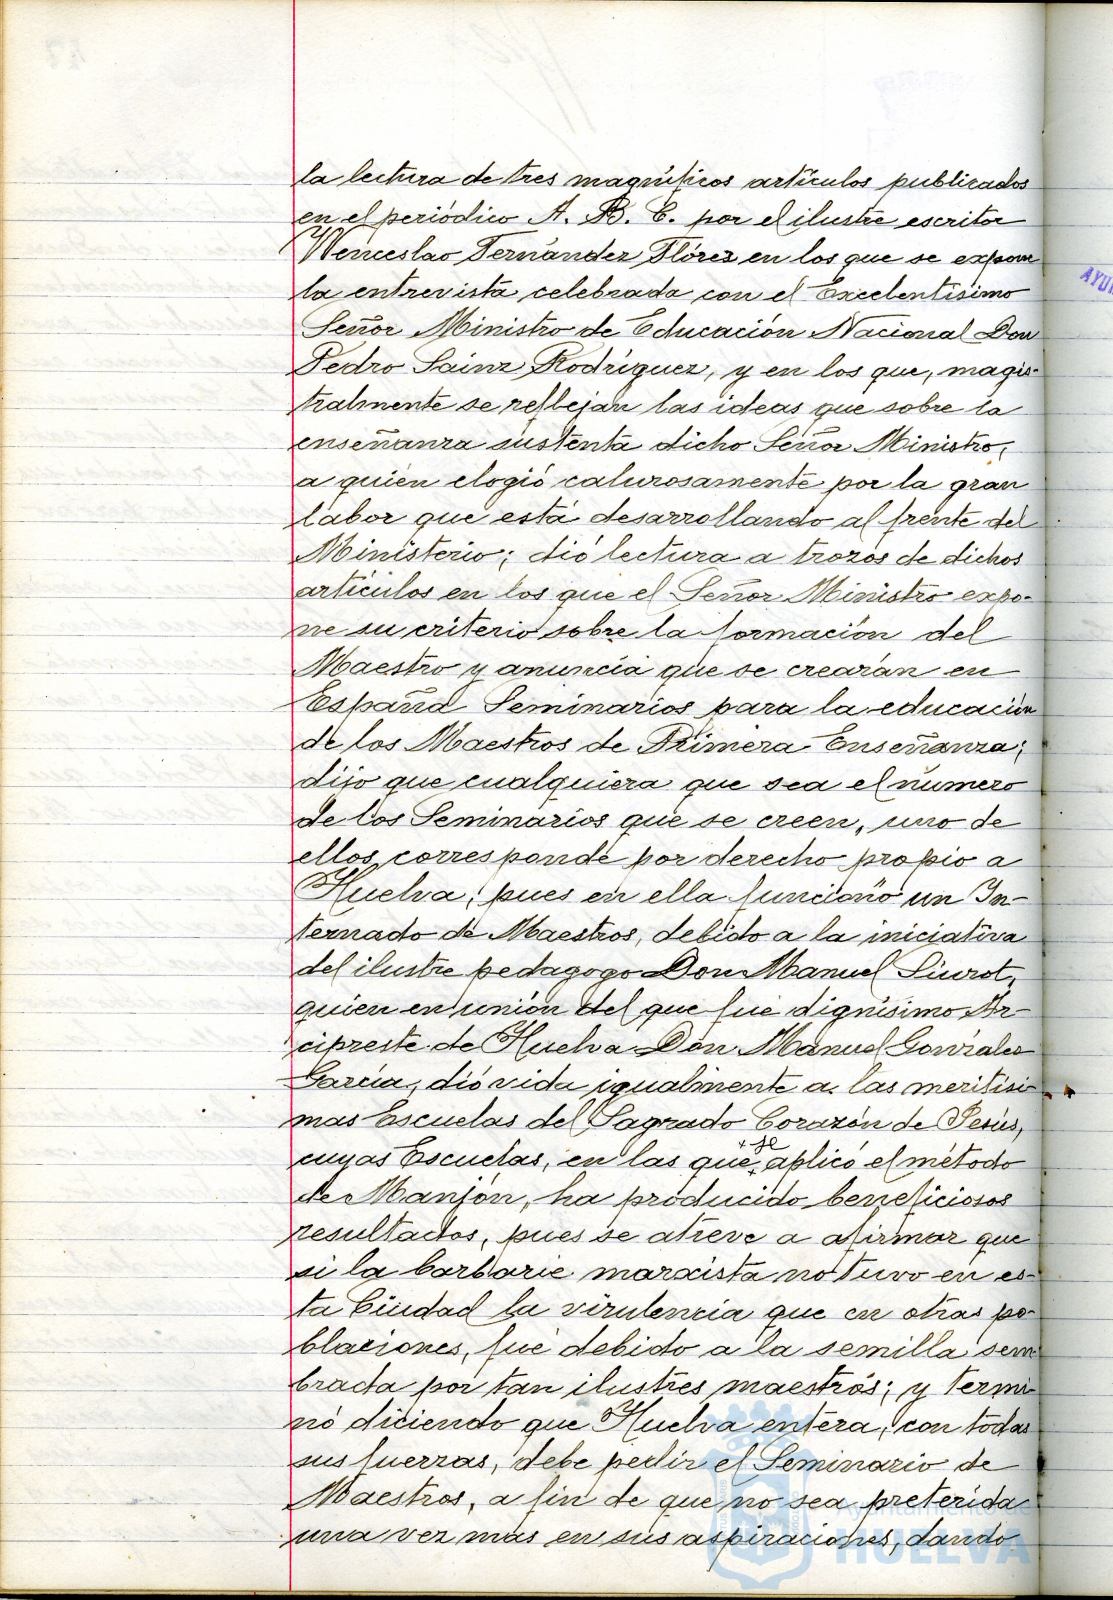 la lectura de tres magníficos artículos publicados
en el periódico A. B. C. por el ilustre escritor
Wenceslao Fernández Flórez en los que se expone
la entrevista celebrada con el Excelentísimo
Señor Ministro de Educación Nacional Don
Pedro Sainz Rodríguez, y en los que, magis-
tralmente se reflejan las ideas que sobre la
enseñanza sustenta dicho Señor Ministro,
a quien elogió calurosamente por la gran
labor que está desarrollando al frente del
Ministerio; dió lectura a trozos de dichos
artículos en los que el Señor Ministro expo-
ne su criterio sobre la formación del
Maestro y anuncia que se crearán en
España Seminarios para la educación
de los Maestros de Primera Enseñanza;
dijo que cualquiera que sea el número
de los Seminarios que se creen, uno de
ellos corresponde por derecho propio a
Huelva, pues en ella funcionó un In-
ternado de Maestros, debido a la iniciativa
del ilustre pedagogo Don Manuel Siurot,
quien en unión del que fué dignísimo Ar-
cipreste de Huelva Don Manuel González
García, dió vida igualmente a las meritísi-
mas Escuelas del Sagrado Corazón de Jesús,
cuyas Escuelas, en las que se aplicó el método
de Manjón, ha producido beneficiosos
resultados, pues se atreve a afirmar que
si la barbarie marxista no tuvo en es-
ta Ciudad la virulencia que en otras po-
blaciones, fué debido a la semilla sem
brada por tan ilustres maestros; y termi-
nó diciendo que Huelva entera, con todas
sus fuerzas, debe pedir el Seminario de
Maestros, a fin de que no sea preterida
una vez mas en sus aspiraciones, dando
AYU
Ayuntamiento de
HUELVA